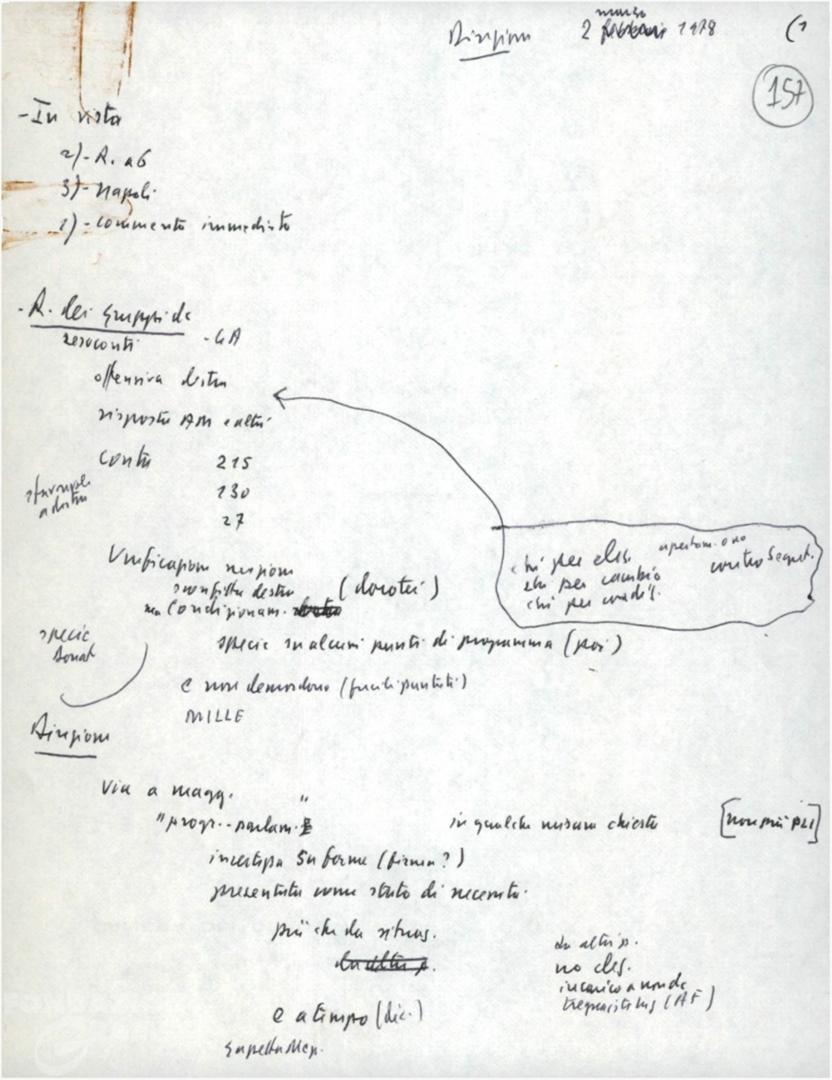 Direzione 2 marzo 1978 (1
157
- In vista
2) - R. a 6
3) - Napoli
1) - commento immediato
- R. dei gruppi dc
resoconti - GA
offensiva destra
risposta AM e altri
conta 215
130
27
a destra
chi per elez. apertam. o no
chi per cambio contro segret.
chi per
sconfitta destra (dorotei)
ma condizionam.
specie su alcuni punti di programma (poi)
specie
Donat
e non demordono (fucili puntati)
MILLE
Direzione
Via a magg.
"progr.-parlam." in qualche misura chiesta [non più PLI]
incertezza su forme (firma?)
presentata come stato di necessità
più che da situaz.
da altri p.
no elez.
incarico a non dc
(AF)
e a tempo (dic.)